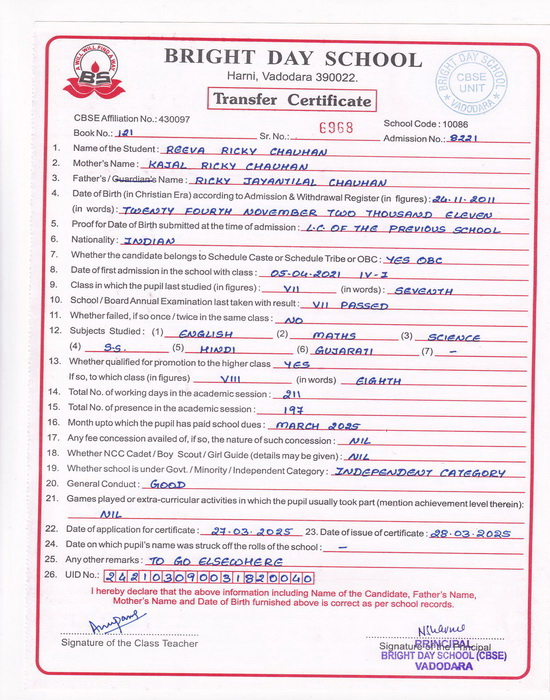 A WILL WILL FIND A WAY
BS
BRIGHT DAY SCHOOL
Harni, Vadodara 390022.
BRIGHT DAY SCHOOL
CBSE
UNIT
VADODARA
Transfer Certificate
CBSE Affiliation No.: 430097
School Code : 10086
Book No.: 121 Sr. No.: 6968 Admission No.: 8221
1. Name of the Student : REEVA RICKY CHAUHAN
2. Mother's Name : KAJAL RICKY CHAUHAN
3. Father's / Guardian's Name : RICKY JAYANTILAL CHAUHAN
4. Date of Birth (in Christian Era) according to Admission & Withdrawal Register (in figures) : 24.11.2011
(in words) : TWENTY FOURTH NOVEMBER TWO THOUSAND ELEVEN
5. Proof for Date of Birth submitted at the time of admission : L.C OF THE PREVIOUS SCHOOL
6. Nationality : INDIAN
7. Whether the candidate belongs to Schedule Caste or Schedule Tribe or OBC : YES OBC
8. Date of first admission in the school with class : 05-04-2021 IV-J
9. Class in which the pupil last studied (in figures) : VII (in words) : SEVENTH
10. School / Board Annual Examination last taken with result : VII PASSED
11. Whether failed, if so once / twice in the same class : NO
12. Subjects Studied : (1) ENGLISH (2) MATHS (3) SCIENCE
(4) S.S. (5) HINDI (6) GUJARATI (7) –
13. Whether qualified for promotion to the higher class YES
If so, to which class (in figures) VIII (in words) EIGHTH
14. Total No. of working days in the academic session : 211
15. Total No. of presence in the academic session : 197
16. Month upto which the pupil has paid school dues : MARCH 2025
17. Any fee concession availed of, if so, the nature of such concession : NIL
18. Whether NCC Cadet / Boy Scout / Girl Guide (details may be given) : NIL
19. Whether school is under Govt. / Minority / Independent Category : INDEPENDENT CATEGORY
20. General Conduct : GOOD
21. Games played or extra-curricular activities in which the pupil usually took part (mention achievement level therein):
NIL
22. Date of application for certificate : 27.03.2025 23. Date of issue of certificate : 28.03.2025
24. Date on which pupil's name was struck off the rolls of the school : –
25. Any other remarks : TO GO ELSEWHERE
26. UID No.: 242103090031820040
I hereby declare that the above information including Name of the Candidate, Father's Name,
Mother's Name and Date of Birth furnished above is correct as per school records.
Signature of the Class Teacher
Signature of the Principal
PRINCIPAL
BRIGHT DAY SCHOOL (CBSE)
VADODARA